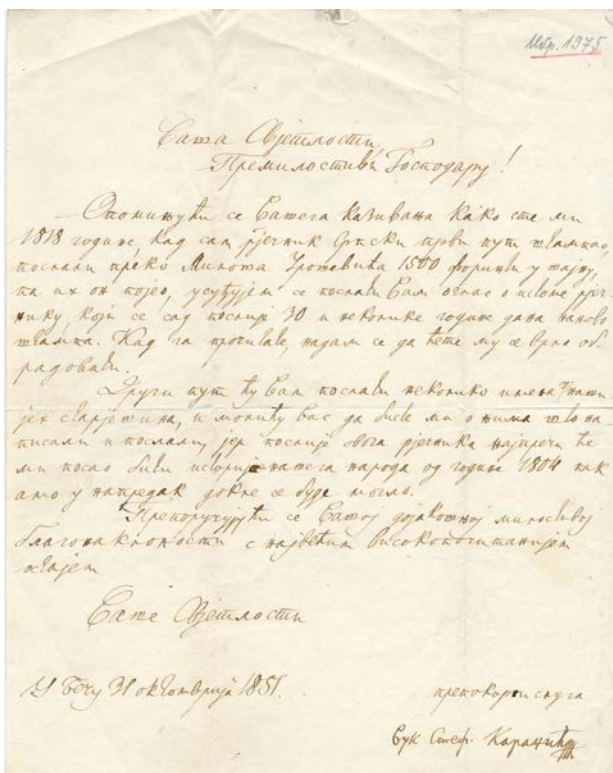 Мбр. 1975
Ваша Свјетлости,
Премилостиви Господару!
Опомињући се Вашега казивања како сте ми
1818 године, кад сам рјечник Српски први пут штампао,
послали преко Милоша Урошевића 1500 форинти у тајну,
па их он појео, усуђујем се послати Вам оглас о томе рјеч-
нику који се сад послије 30 и неколике године дана наново
штампа. Кад га прочитате, надам се да ћете му се врло об-
радовати.
Други пут ћу Вам послати неколико имена знатни-
јех старјешина, и молићу вас да бисте ми о њима што на-
писали и послали, јер послије овога рјечника најпречи ће
ми посао бити историја нашега народа од године 1804 пак
амо у напредак докле се буде могло.
Препоручујући се Вашој дојакошној милостивој
благонаклоности с највећим високопочитанијем
остајем
Ваше Свјетлости
У Бечу 31 октомврија 1851.
препокорни слуга
Вук Стеф. Караџић